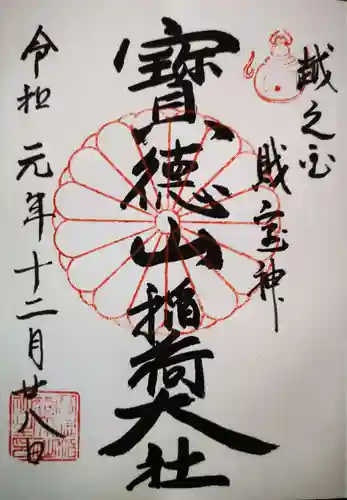 越之宝
財宝神
寶德山稲荷大社
令和元年十二月廿八日